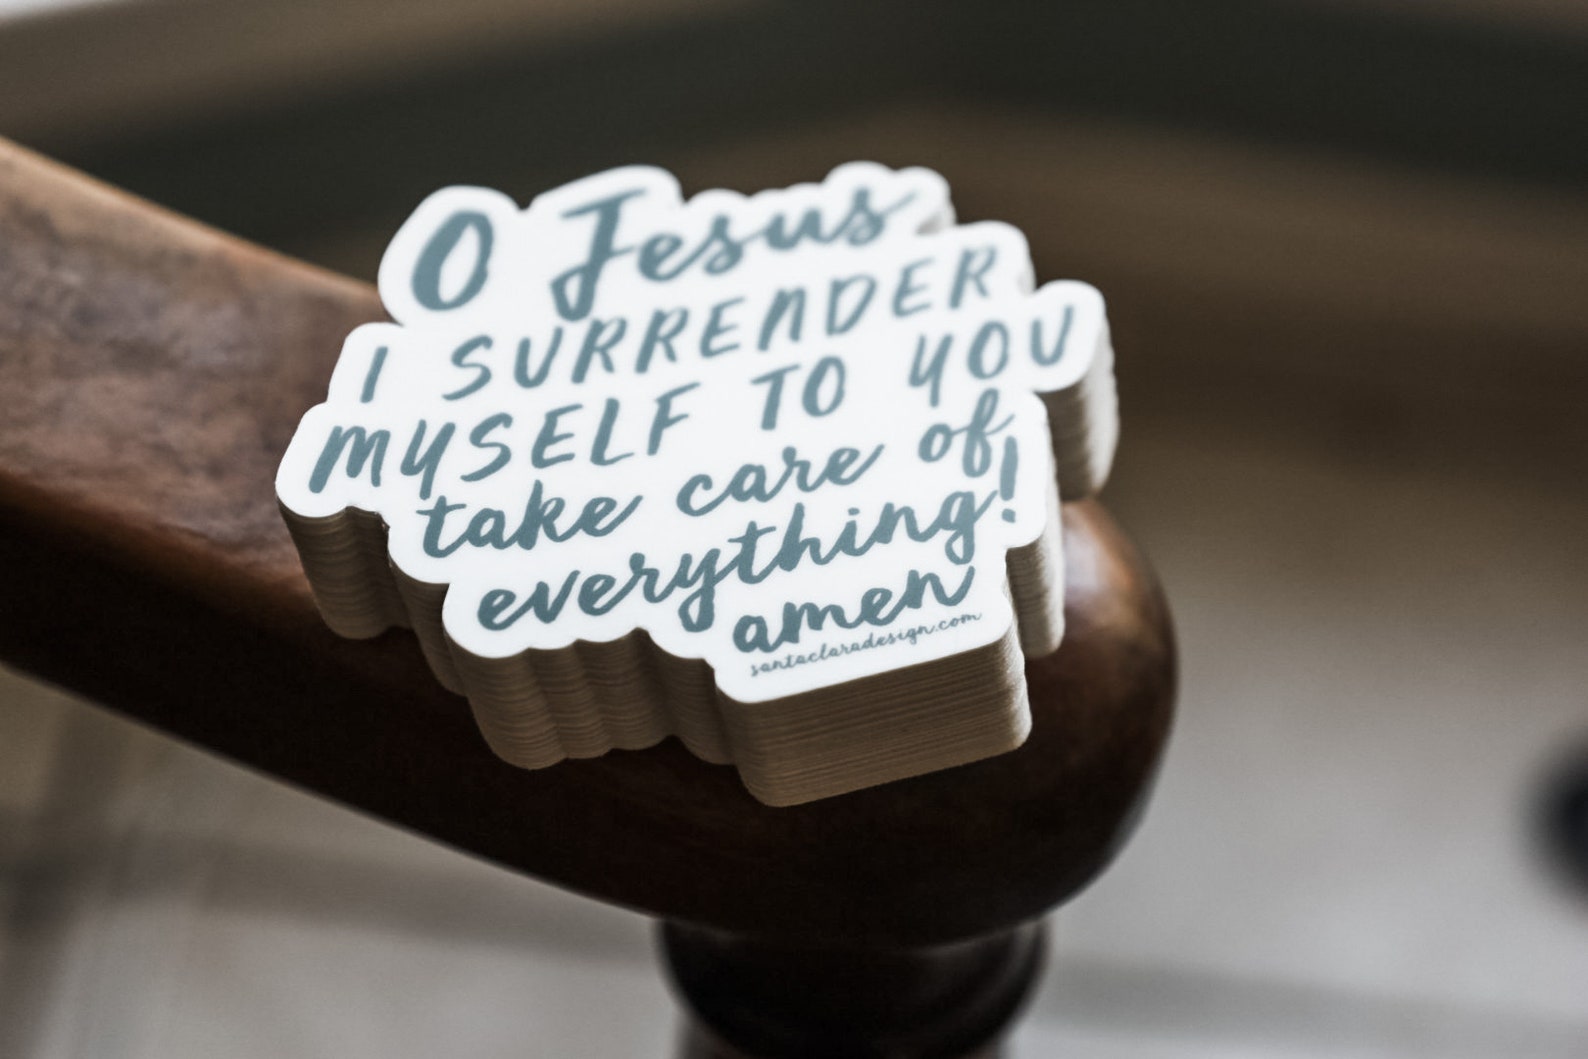 O Jesus
I SURRENDER
MYSELF TO YOU
take care of
everything!
amen
santaclaradesign.com